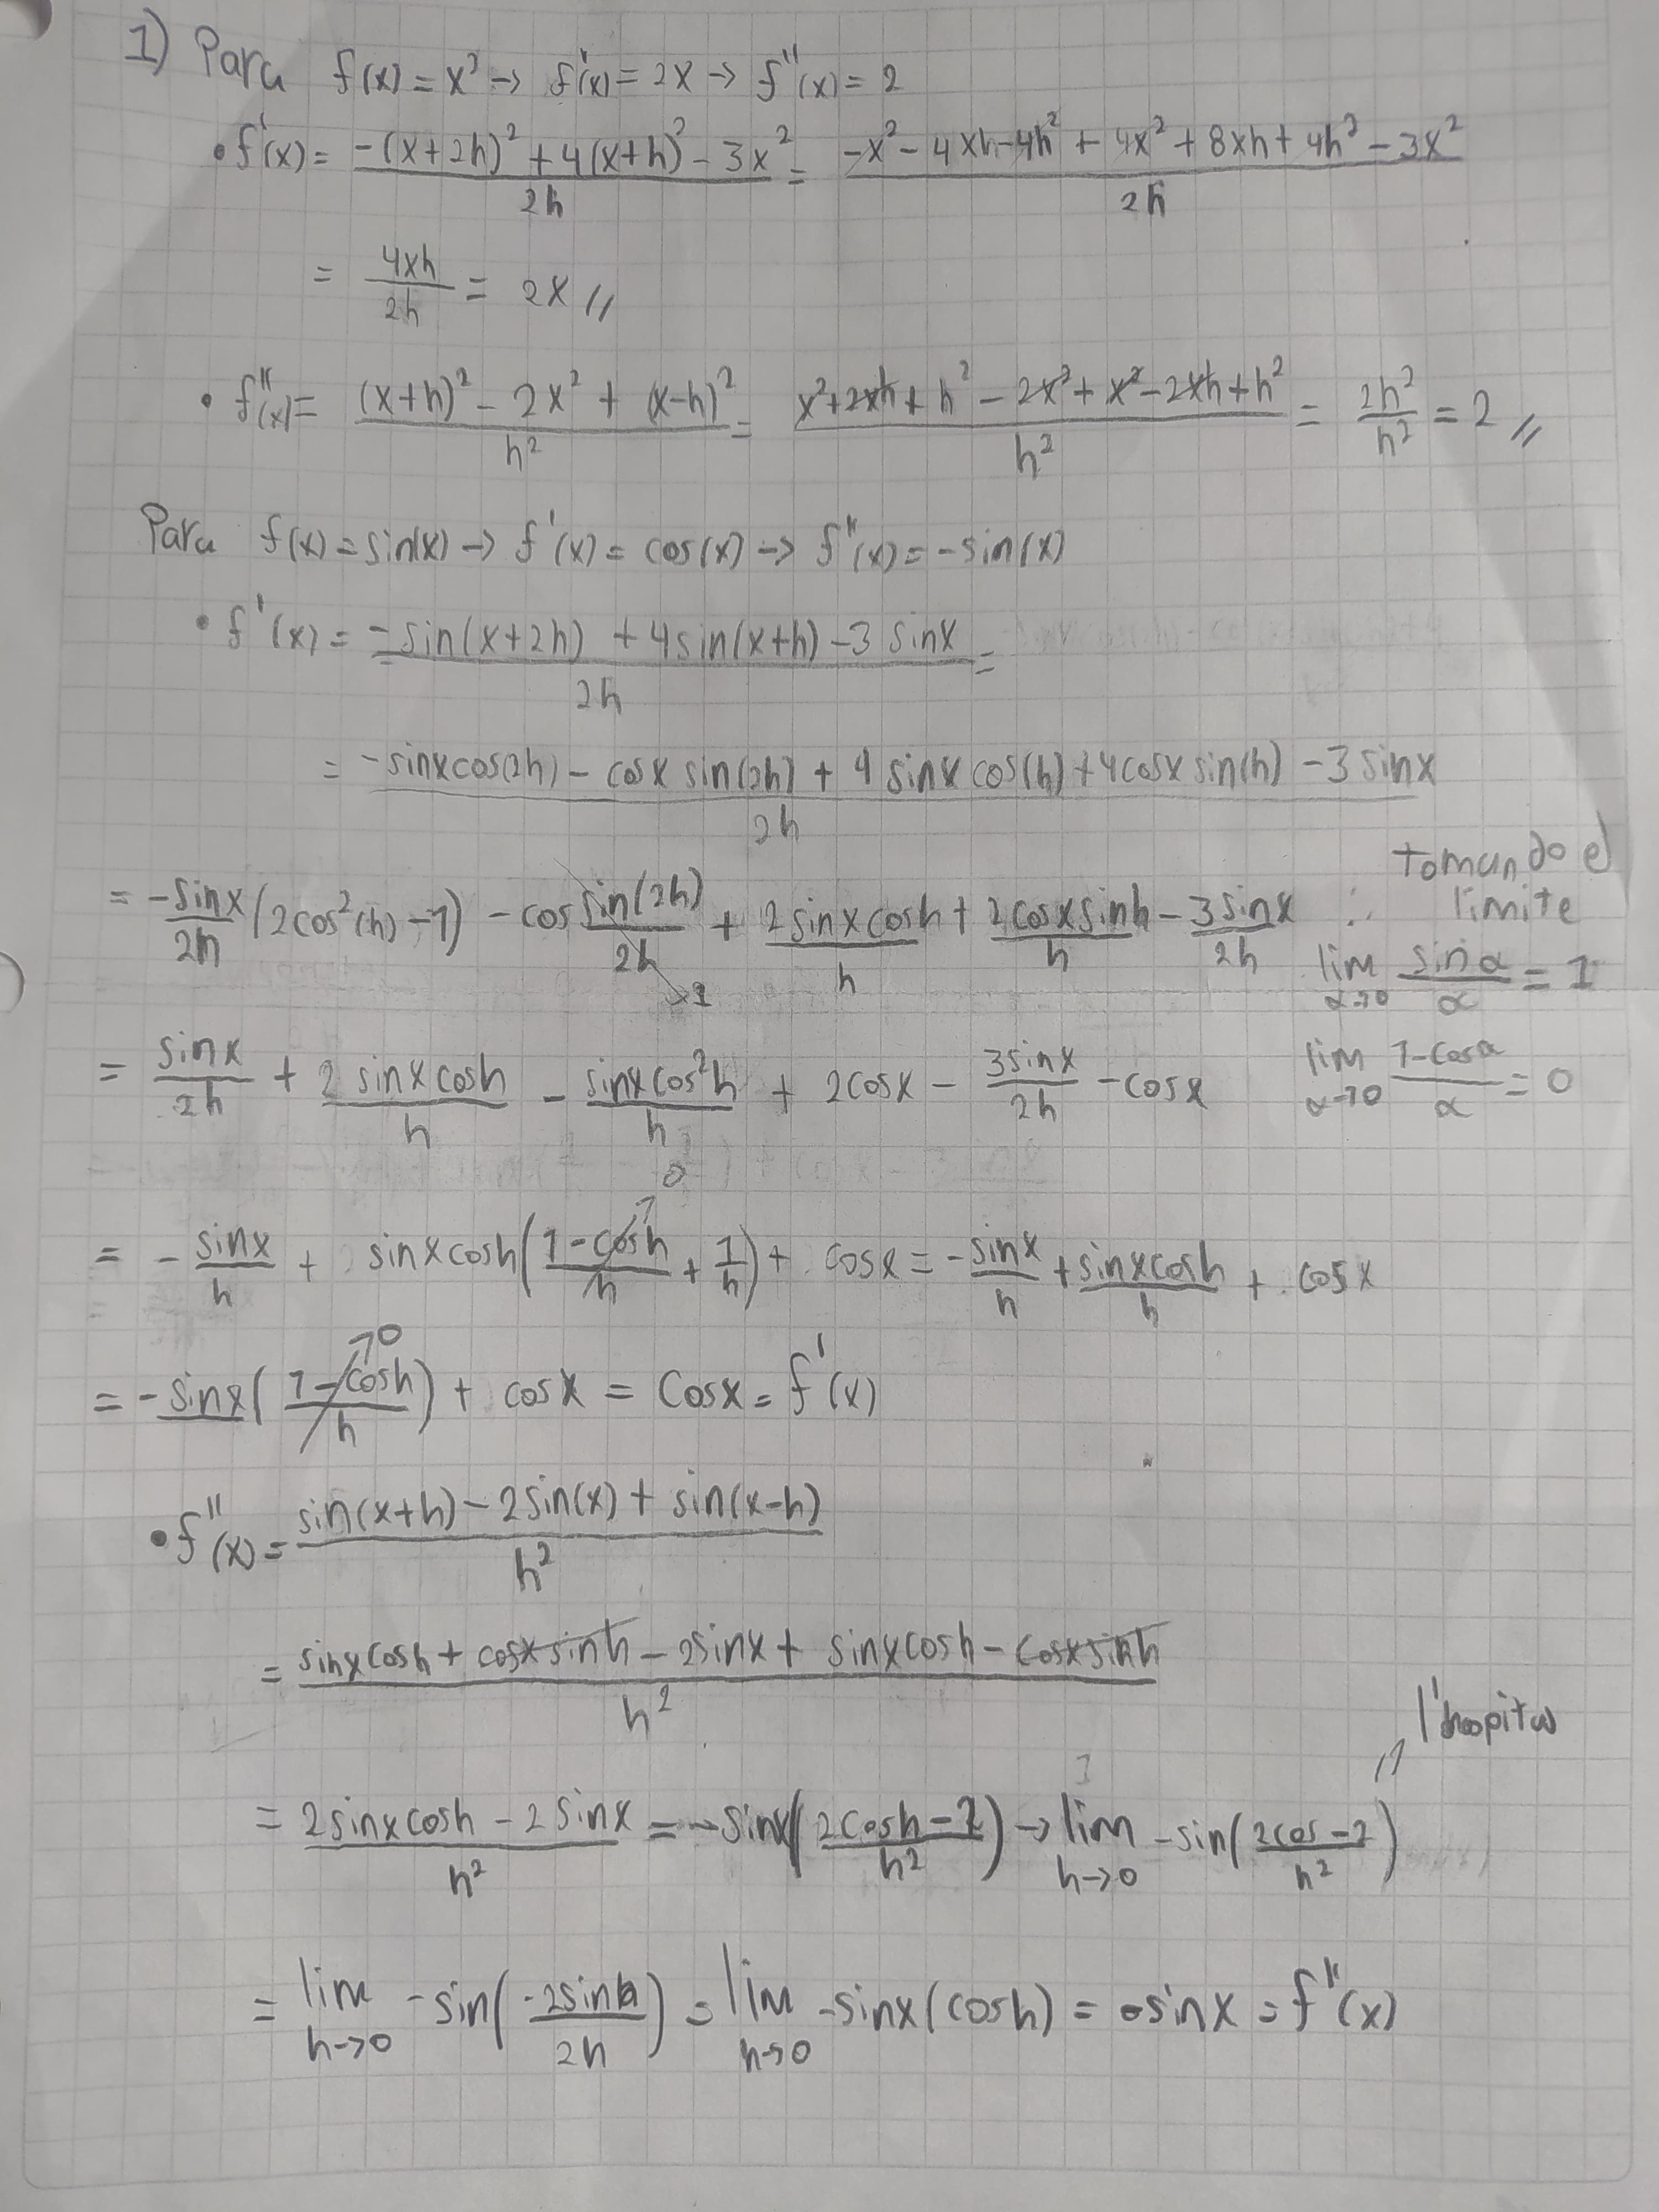 1) Para f(x) = x² → f'(x) = 2x → f''(x) = 2
• f'(x) = (-(x+2h)² + 4(x+h)² - 3x²)/(2h) = (-x² - 4xh - 4h² + 4x² + 8xh + 4h² - 3x²)/(2h)
= 4xh/(2h) = 2x //
• f''(x) = ((x+h)² - 2x² + (x-h)²)/h² = (x² + 2xh + h² - 2x² + x² - 2xh + h²)/h² = 2h²/h² = 2 //
Para f(x) = sin(x) → f'(x) = cos(x) → f''(x) = -sin(x)
• f'(x) = (-sin(x+2h) + 4sin(x+h) - 3 sinx)/(2h) =
= (-sinxcos(2h) - cosx sin(2h) + 4 sinx cos(h) + 4cosx sin(h) - 3 sinx)/(2h)
= -sinx/(2h) (2cos²(h) - 1) - cos sin(2h)/(2h) →1 + 2sinxcosh/h + 2cosxsinh/h - 3sinx/(2h) ∴ tomando el
limite
lim α→0 sinα/α = 1
= sinx/(2h) + 2sinxcosh/h - sinxcos²h/h + 2cosx - 3sinx/(2h) - cosx lim α→0 (1-cosα)/α = 0
= -sinx/h + sinxcosh((1-cosh)/h →0 + 1/h) + cosx = -sinx/h + sinxcosh/h + cosx
= -sinx((1-cosh)/h) →0 + cosx = Cosx = f'(x)
• f''(x) = (sin(x+h) - 2sin(x) + sin(x-h))/h²
= (sinxcosh + cosxsinh - 2sinx + sinxcosh - cosxsinh)/h²
l'hopital
= (2sinxcosh - 2sinx)/h² = -sinx((2cosh-2)/h²) → lim h→0 -sin((2cos-2)/h²)
= lim h→0 -sin(-2sinh/(2h)) = lim h→0 -sinx(cosh) = -sinx = f''(x)